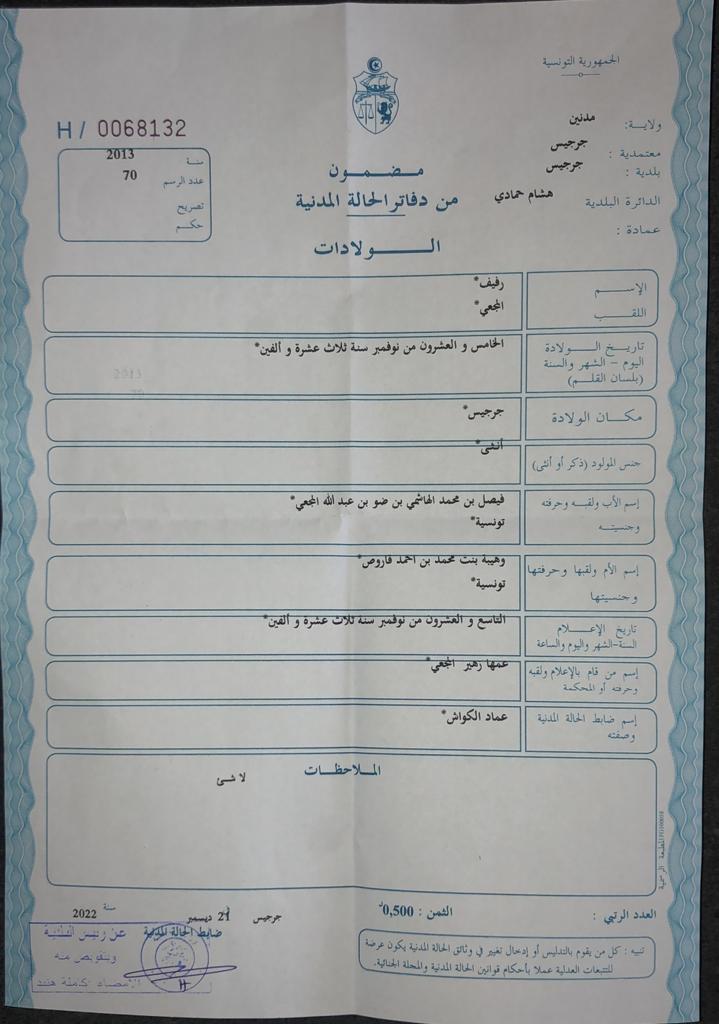 الجمهورية التونسية
ولايـة: مدنين
معتمدية : جرجيس
بلدية : جرجيس
الدائرة البلدية هشام حمادي
عمادة :
H / 0068132
سنة 2013
عدد الرسم 70
تصريح
حكـم
مـضـمـون
من دفاتر الحالة المدنية
الــولادات
الإســـم رفيف*
اللقـــب المجعي*
تاريخ الـــولادة الخامس و العشرون من نوفمبر سنة ثلاث عشرة و ألفين*
اليوم - الشهر والسنة
(بلسان القلـم)
مكـــان الولادة جرجيس*
جنس المولود (ذكر أو أنثى) أنثى*
إسم الأب ولقبـه وحرفته فيصل بن محمد الهاشمي بن ضو بن عبد الله المجعي*
وجنسيتـه تونسية*
إسم الأم ولقبها وحرفتها وهيبة بنت محمد بن احمد فاروص*
وجنسيتها تونسية*
تاريخ الإعـــلام التاسع و العشرون من نوفمبر سنة ثلاث عشرة و ألفين*
السنة-الشهر واليوم والساعة
إسم من قام بالإعلام ولقبه عمها زهير المجعي*
وحرفته أو المحكمة
إسم ضابط الحالة المدنية عماد الكواش*
وصفته
الملاحظـات
لا شئ
العدد الرتبي :
الثمن : 0,500د
جرجيس 21 ديسمبر سنة 2022
ضابط الحالة المدنية
عن رئيس البلدية
وبتفويض منه
الإمضاء كاملة هنيد
تنبيه : كل من يقوم بالتدليس أو إدخال تغيير في وثائق الحالة المدنية يكون عرضة
للتتبعات العدلية عملا بأحكام قوانين الحالة المدنية والمجلة الجنائية.